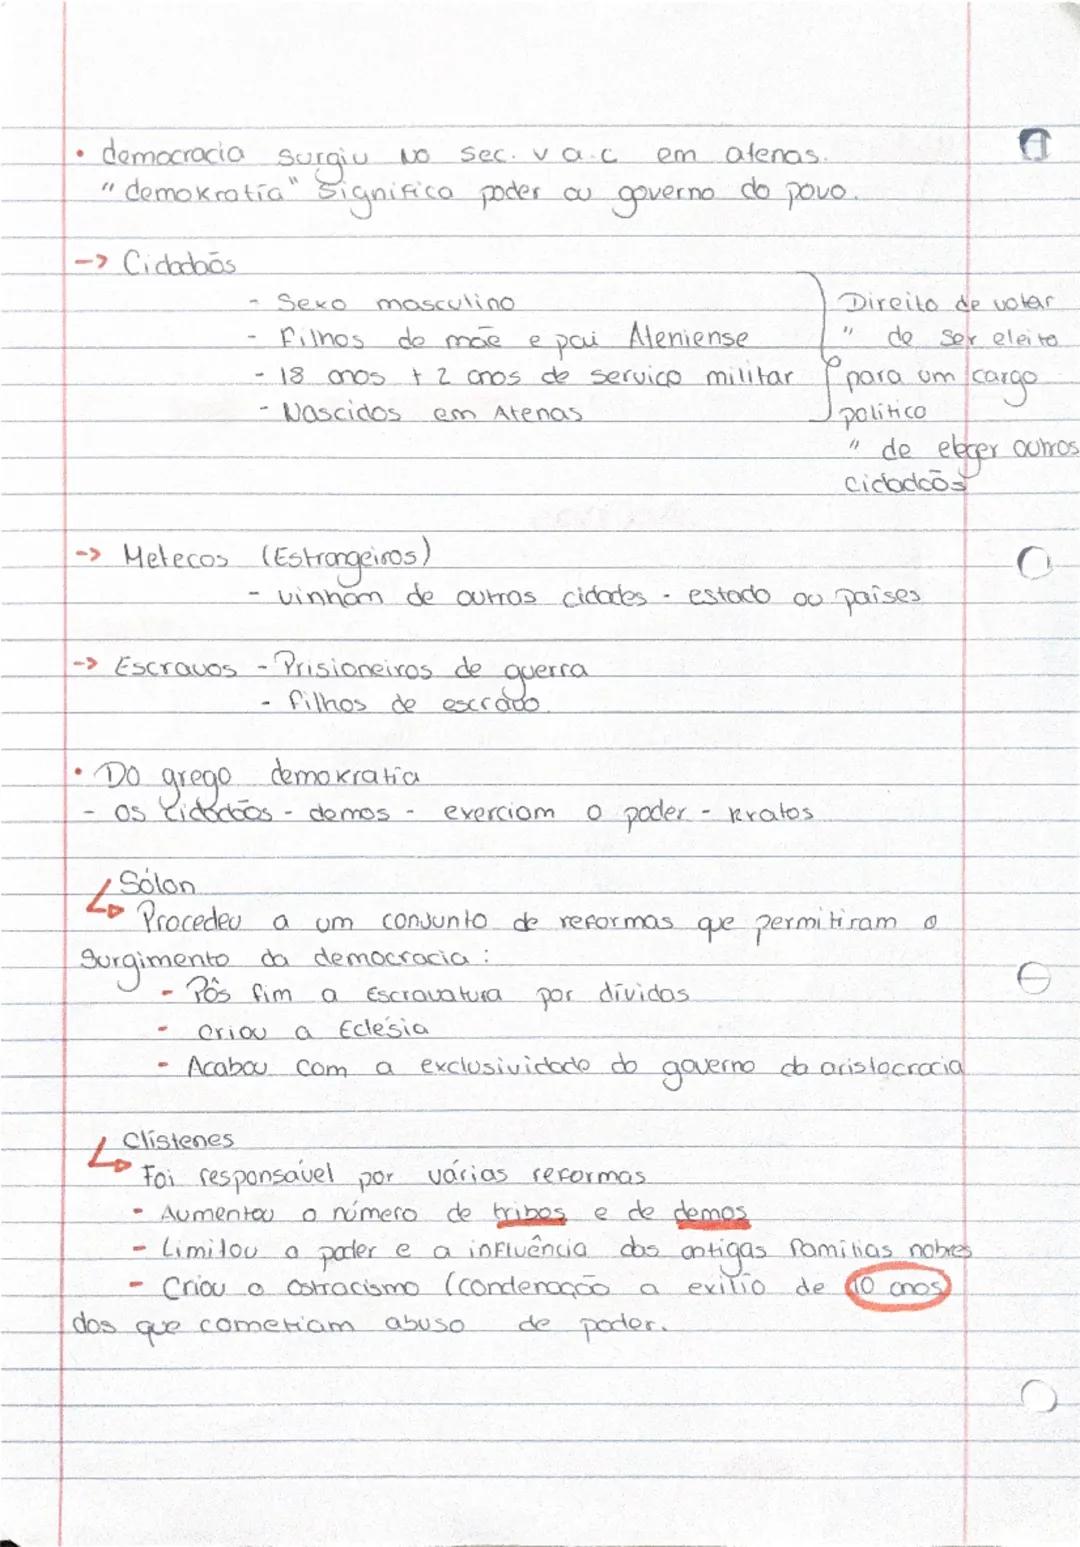 • democracia surgiu no sec. V a.c em atenas.
"demokratía" significa poder ou governo do povo.
-> Cidadãos
- Sexo masculino
- filhos de mãe e pai Ateniense
- 18 anos + 2 anos de serviço militar
- Nascidos em Atenas
Direito de votar
" de ser eleito
para um cargo
político
" de eleger outros
cidadãos
-> Metecos (Estrangeiros)
- vinham de outras cidades - estado ou países
-> Escravos - Prisioneiros de guerra
- filhos de escravo.
• Do grego demokratia
- os cidadãos - demos - exerciam o poder - kratos
Sólon
Procedeu a um conjunto de reformas que permitiram o
surgimento da democracia:
- Pôs fim a Escravatura por dívidas
- criou a Eclésia
- Acabou com a exclusividade do governo da aristocracia
Clístenes
Foi responsável por várias reformas
- Aumentou o número de tribos e de demos
- Limitou o poder e a influência das antigas famílias nobres
- Criou o ostracismo (condenação a exílio de 10 anos
dos que cometiam abuso de poder.